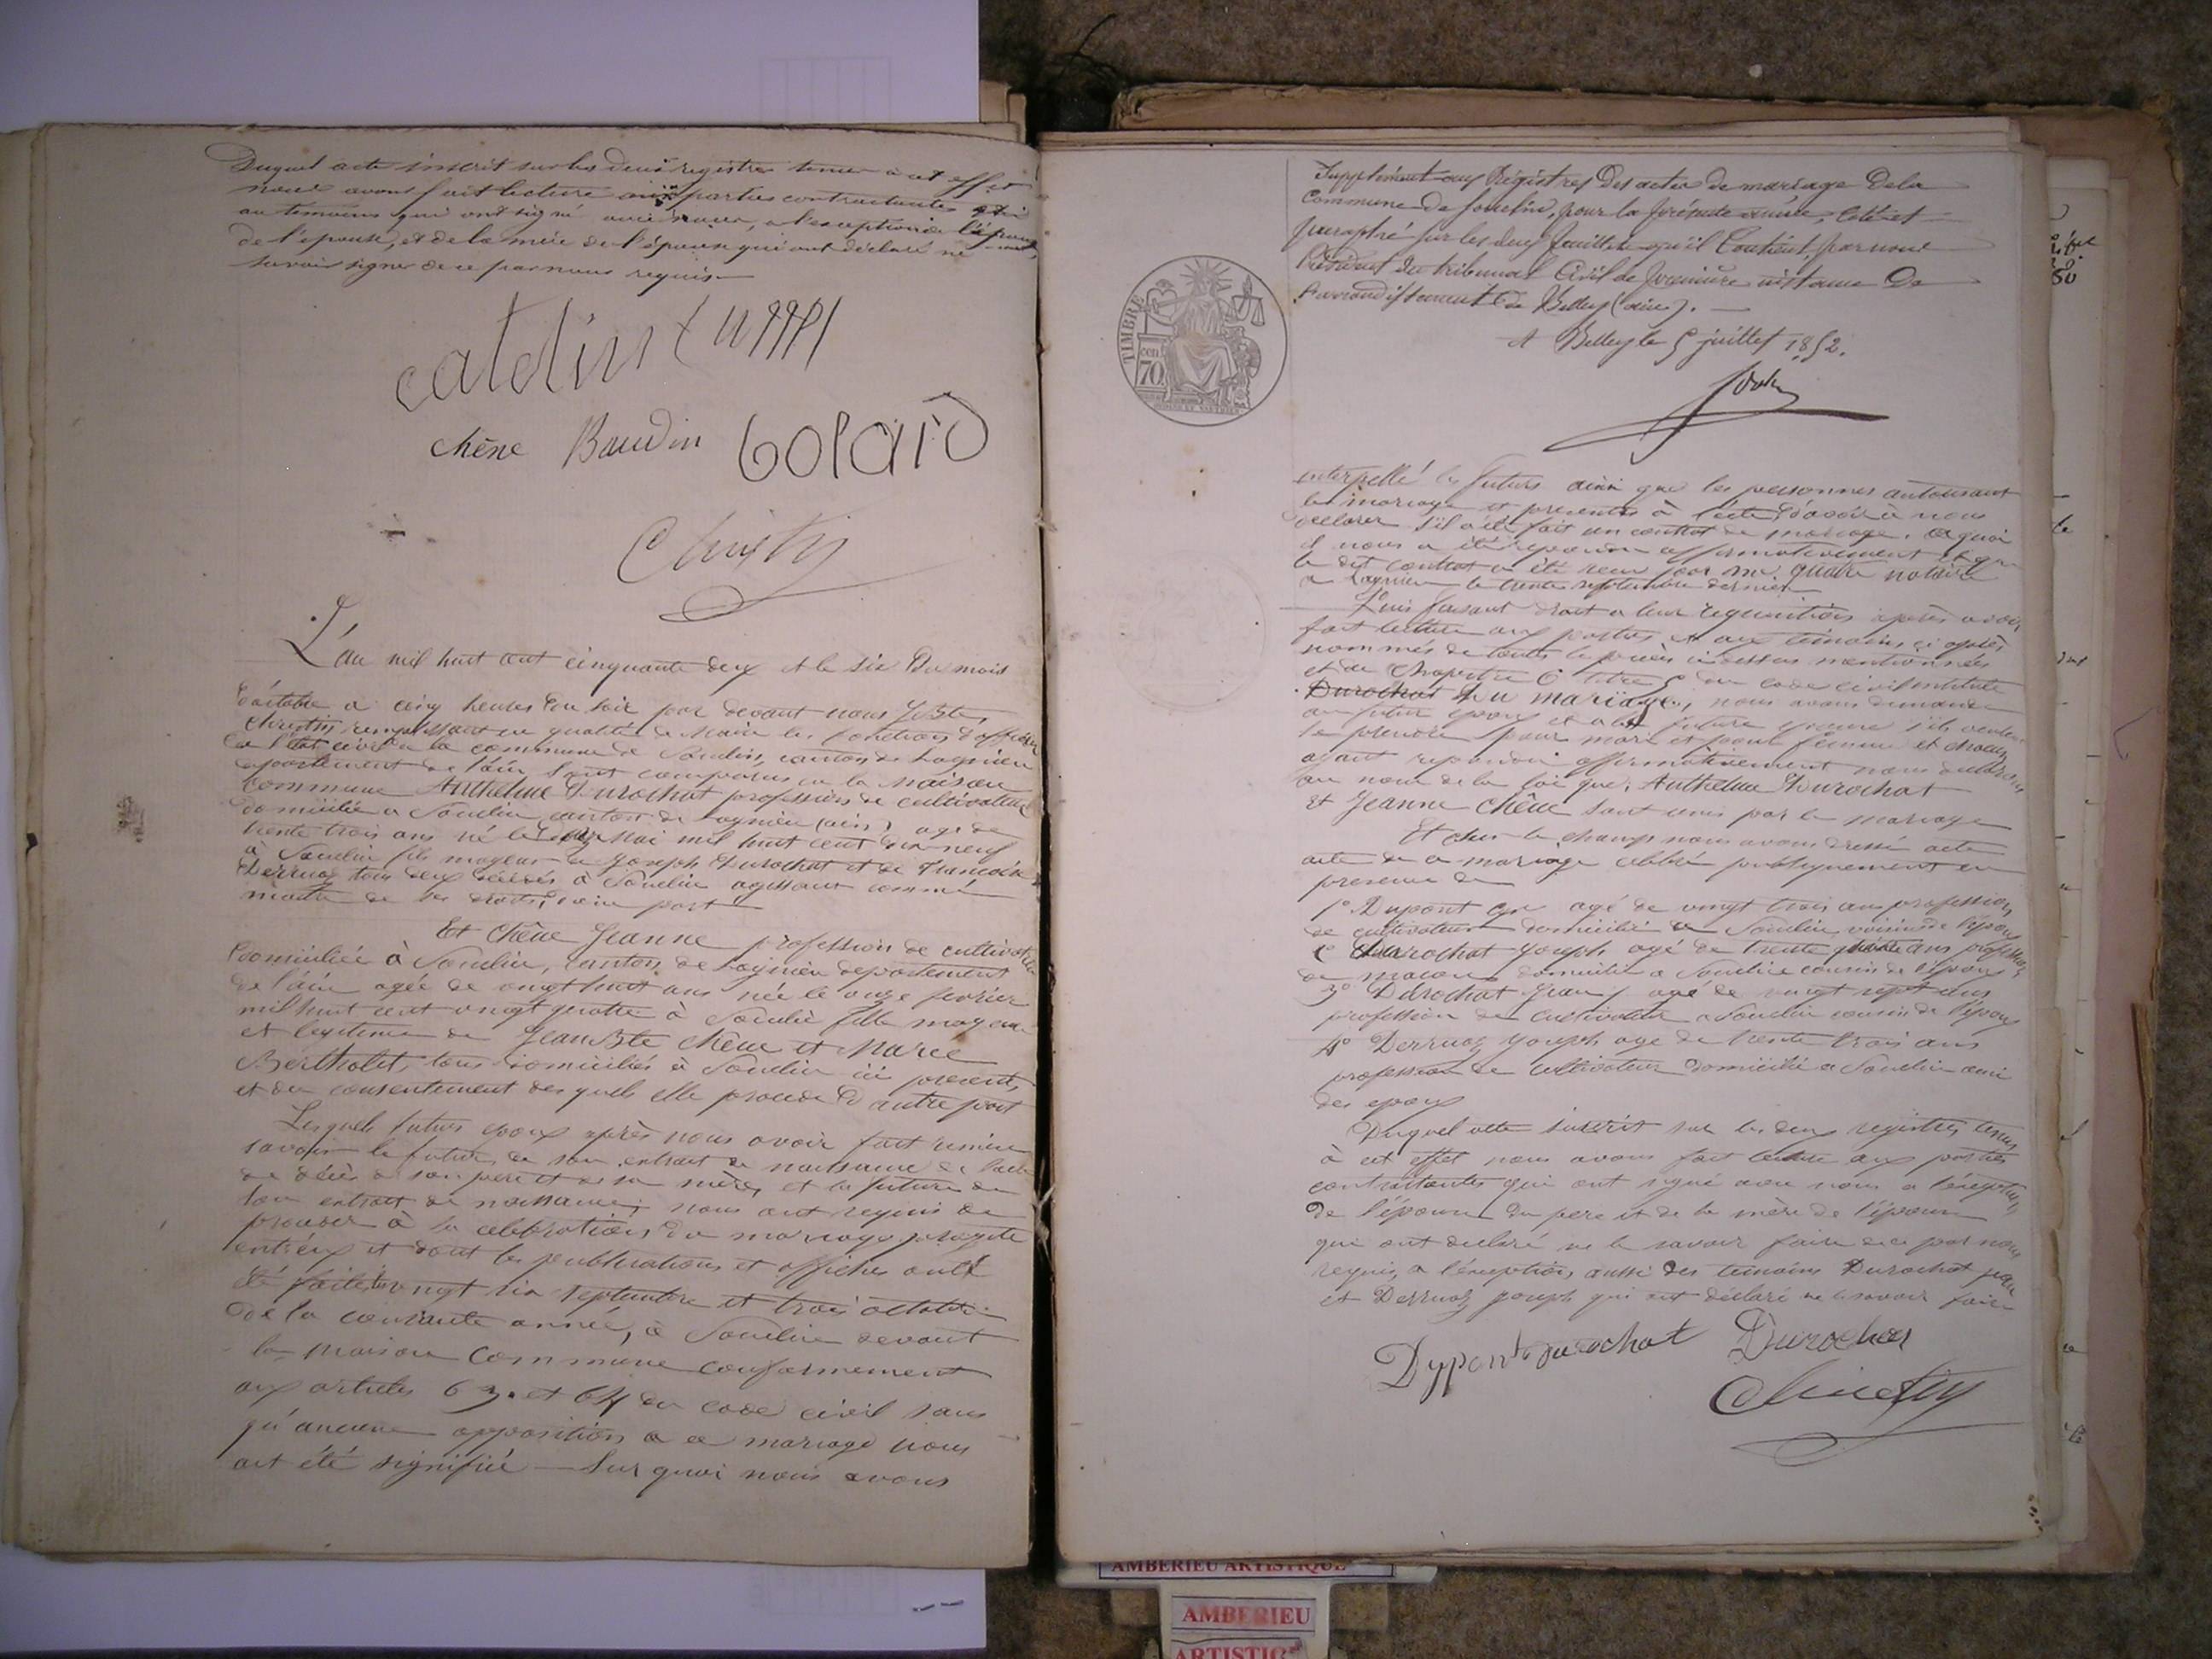 Duquel acte inscrit sur les deux registres tenus à cet effet
nous avons fait lecture aux parties contractantes et
au temoins qui ont signé avec nous, a l'exception de l'époux
de l'épouse, et de la mère de l'épouse qui ont déclaré ne
savoir signer de ce par nous requis
catelin
chêne Baudin Golard
Christin
L'an mil huit cent cinquante deux et le six du mois
d'octobre a cinq heures du soir par devant nous J Bte
Christin remplissant en qualité de Maire les fonctions d'officier
de l'état civil de la commune de Souclin, canton de Lagnieu
département de l'ain sont comparus en la maison
commune Anthelme Durochat profession de cultivateur
domicilié a Souclin canton de Lagnieu (ain) agé de
trente trois ans né le mai mil huit cent dix neuf
à Souclin fils majeur de Joseph Durochat et de Francoise
Derruaz tous deux décédés à Souclin agissant comme
maitre de ses droits, d'une part
Et Chêne Jeanne profession de cultivatrice
domiciliée à Souclin, canton de Lagnieu département
de l'ain agée de vingt huit ans née le onze fevrier
mil huit cent vingt quatre à Souclin fille majeure
et legitime de Jean Bte Chêne et Marie
Bertholet, tous domiciliés à Souclin ici presents,
et du consentement desquels elle procede d'autre part
Lesquels futurs epoux après nous avoir fait remise
savoir le futur de son extrait de naissance de l'acte
de décès de son père et de sa mère, et la future de
son extrait de naissance; nous ont requis de
proceder à la celebration du mariage projeté
entr'eux et dont les publications et affiches ont
été faites les vingt six septembre et trois octobre
de la courante année, à Souclin devant
la maison commune conformement
aux articles 63. et 64 du code civil sans
qu'aucune opposition a ce mariage nous
ait été signifié – Sur quoi nous avons
Supplément aux Régistres Des actes de mariage De la
Commune de Souclin, pour la présente année, Coté et
paraphé sur les deux feuillets qu'il Contient, par nous
Président du tribunal Civil de première instance De
l'arrondissement de Belley (ain).
A Belley le 5 juillet 1852.
TIMBRE
cen
70
interpellé les futurs ainsi que les personnes autorisant
le mariage et presentes à l'acte d'avoir à nous
declarer s'il a été fait un contrat de mariage. A quoi
il nous a été repondu affirmativement et que
le dit contrat a été recu par me notaire
a Lagnieu le trente septembre dernier
Puis faisant droit a leur requisition après avoir
fait lecture aux parties et aux témoins ci après
nommés de toutes les pièces ci dessus mentionnées
et du chapitre 6 titre 5 du code civil intitulé
Durochat Du mariage, nous avons demandé
au futur epoux et a la future epouse s'ils veulent
se prendre pour mari et pour femme et chacun
ayant repondu affirmativement nous declarons
au nom de la loi que, Anthelme Durochat
et Jeanne Chêne sont unis par le mariage
Et sur le champ nous avons dressé acte
acte de ce mariage célébré publiquement en
presence de
1º Dupont agé de vingt trois ans profession
de cultivateur domicilié a Souclin voisin de l'époux
2º Durochat Joseph agé de trente quatre ans profession
de macon domicilié a Souclin cousin de l'époux
3º Durochat Jean agé de vingt sept ans
profession de cultivateur a Souclin cousin de l'époux
4º Derruaz Joseph agé de trente trois ans
profession de cultivateur domicilié a Souclin ami
des epoux
Duquel acte inscrit sur les deux registres tenus
à cet effet nous avons fait lecture aux parties
contractantes qui ont signé avec nous a l'exception
de l'épouse du pere et de la mère de l'épouse
qui ont declaré ne le savoir faire de ce par nous
requis, a l'exception aussi des temoins Durochat jean
et Derruaz Joseph qui ont déclaré ne le savoir faire
Dypont Durochat Durochat
Christin
AMBERIEU ARTISTIQUE
AMBERIEU
ARTISTIQ